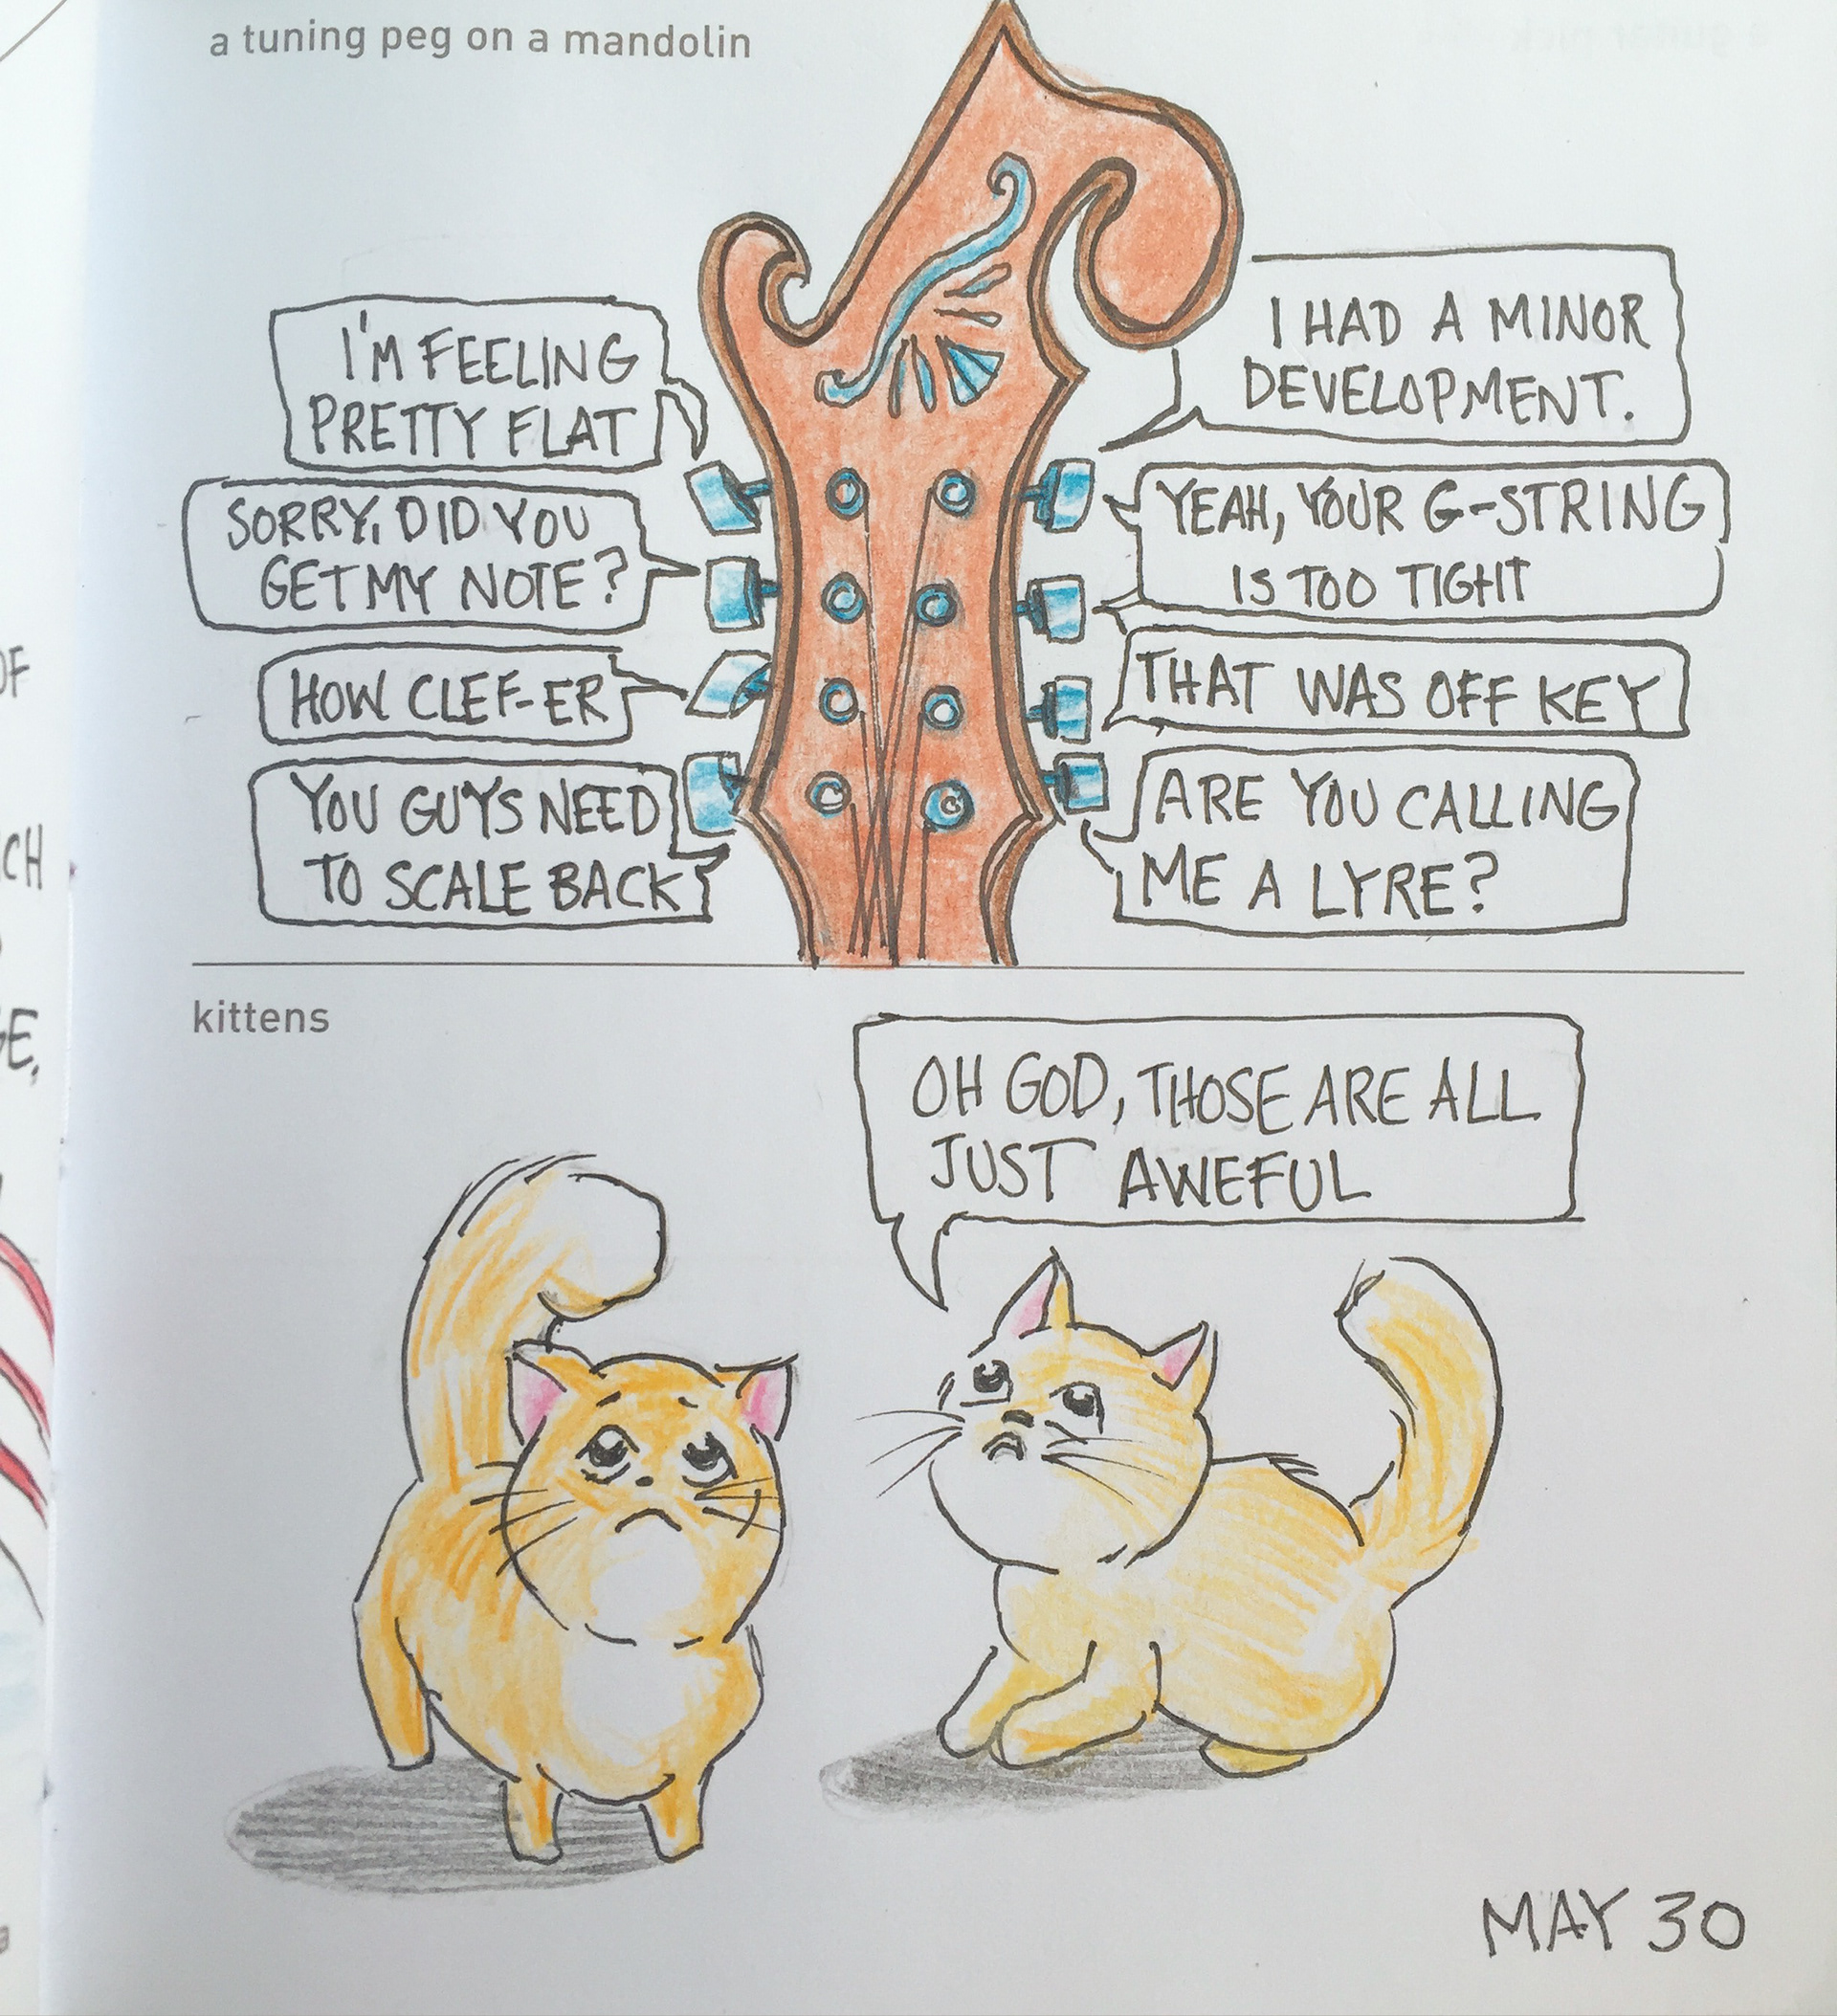 a tuning peg on a mandolin
I'M FEELING
PRETTY FLAT
I HAD A MINOR
DEVELOPMENT.
SORRY, DID YOU
GET MY NOTE?
YEAH, YOUR G-STRING
IS TOO TIGHT
HOW CLEF-ER
THAT WAS OFF KEY
YOU GUYS NEED
TO SCALE BACK
ARE YOU CALLING
ME A LYRE?
kittens
OH GOD, THOSE ARE ALL
JUST AWEFUL
MAY 30